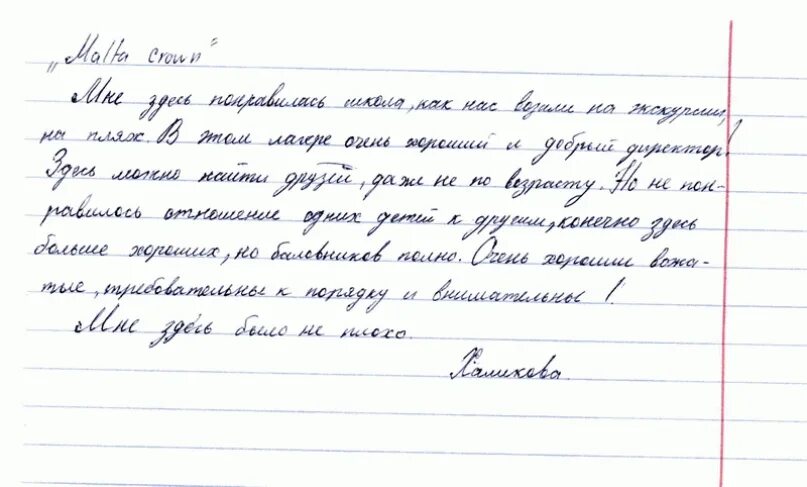 „Malta crown"
Мне здесь понравилась школа, как нас возили на экскурсии,
на пляж. В этом лагере очень хороший и добрый директор!
Здесь можно найти друзей, даже не по возрасту. Но не пон-
равилось отношение одних детей к другим, конечно здесь
больше хороших, но баловников полно. Очень хорошие вожа-
тые, требовательны к порядку и внимательны!
Мне здесь было не плохо.
Халикова.